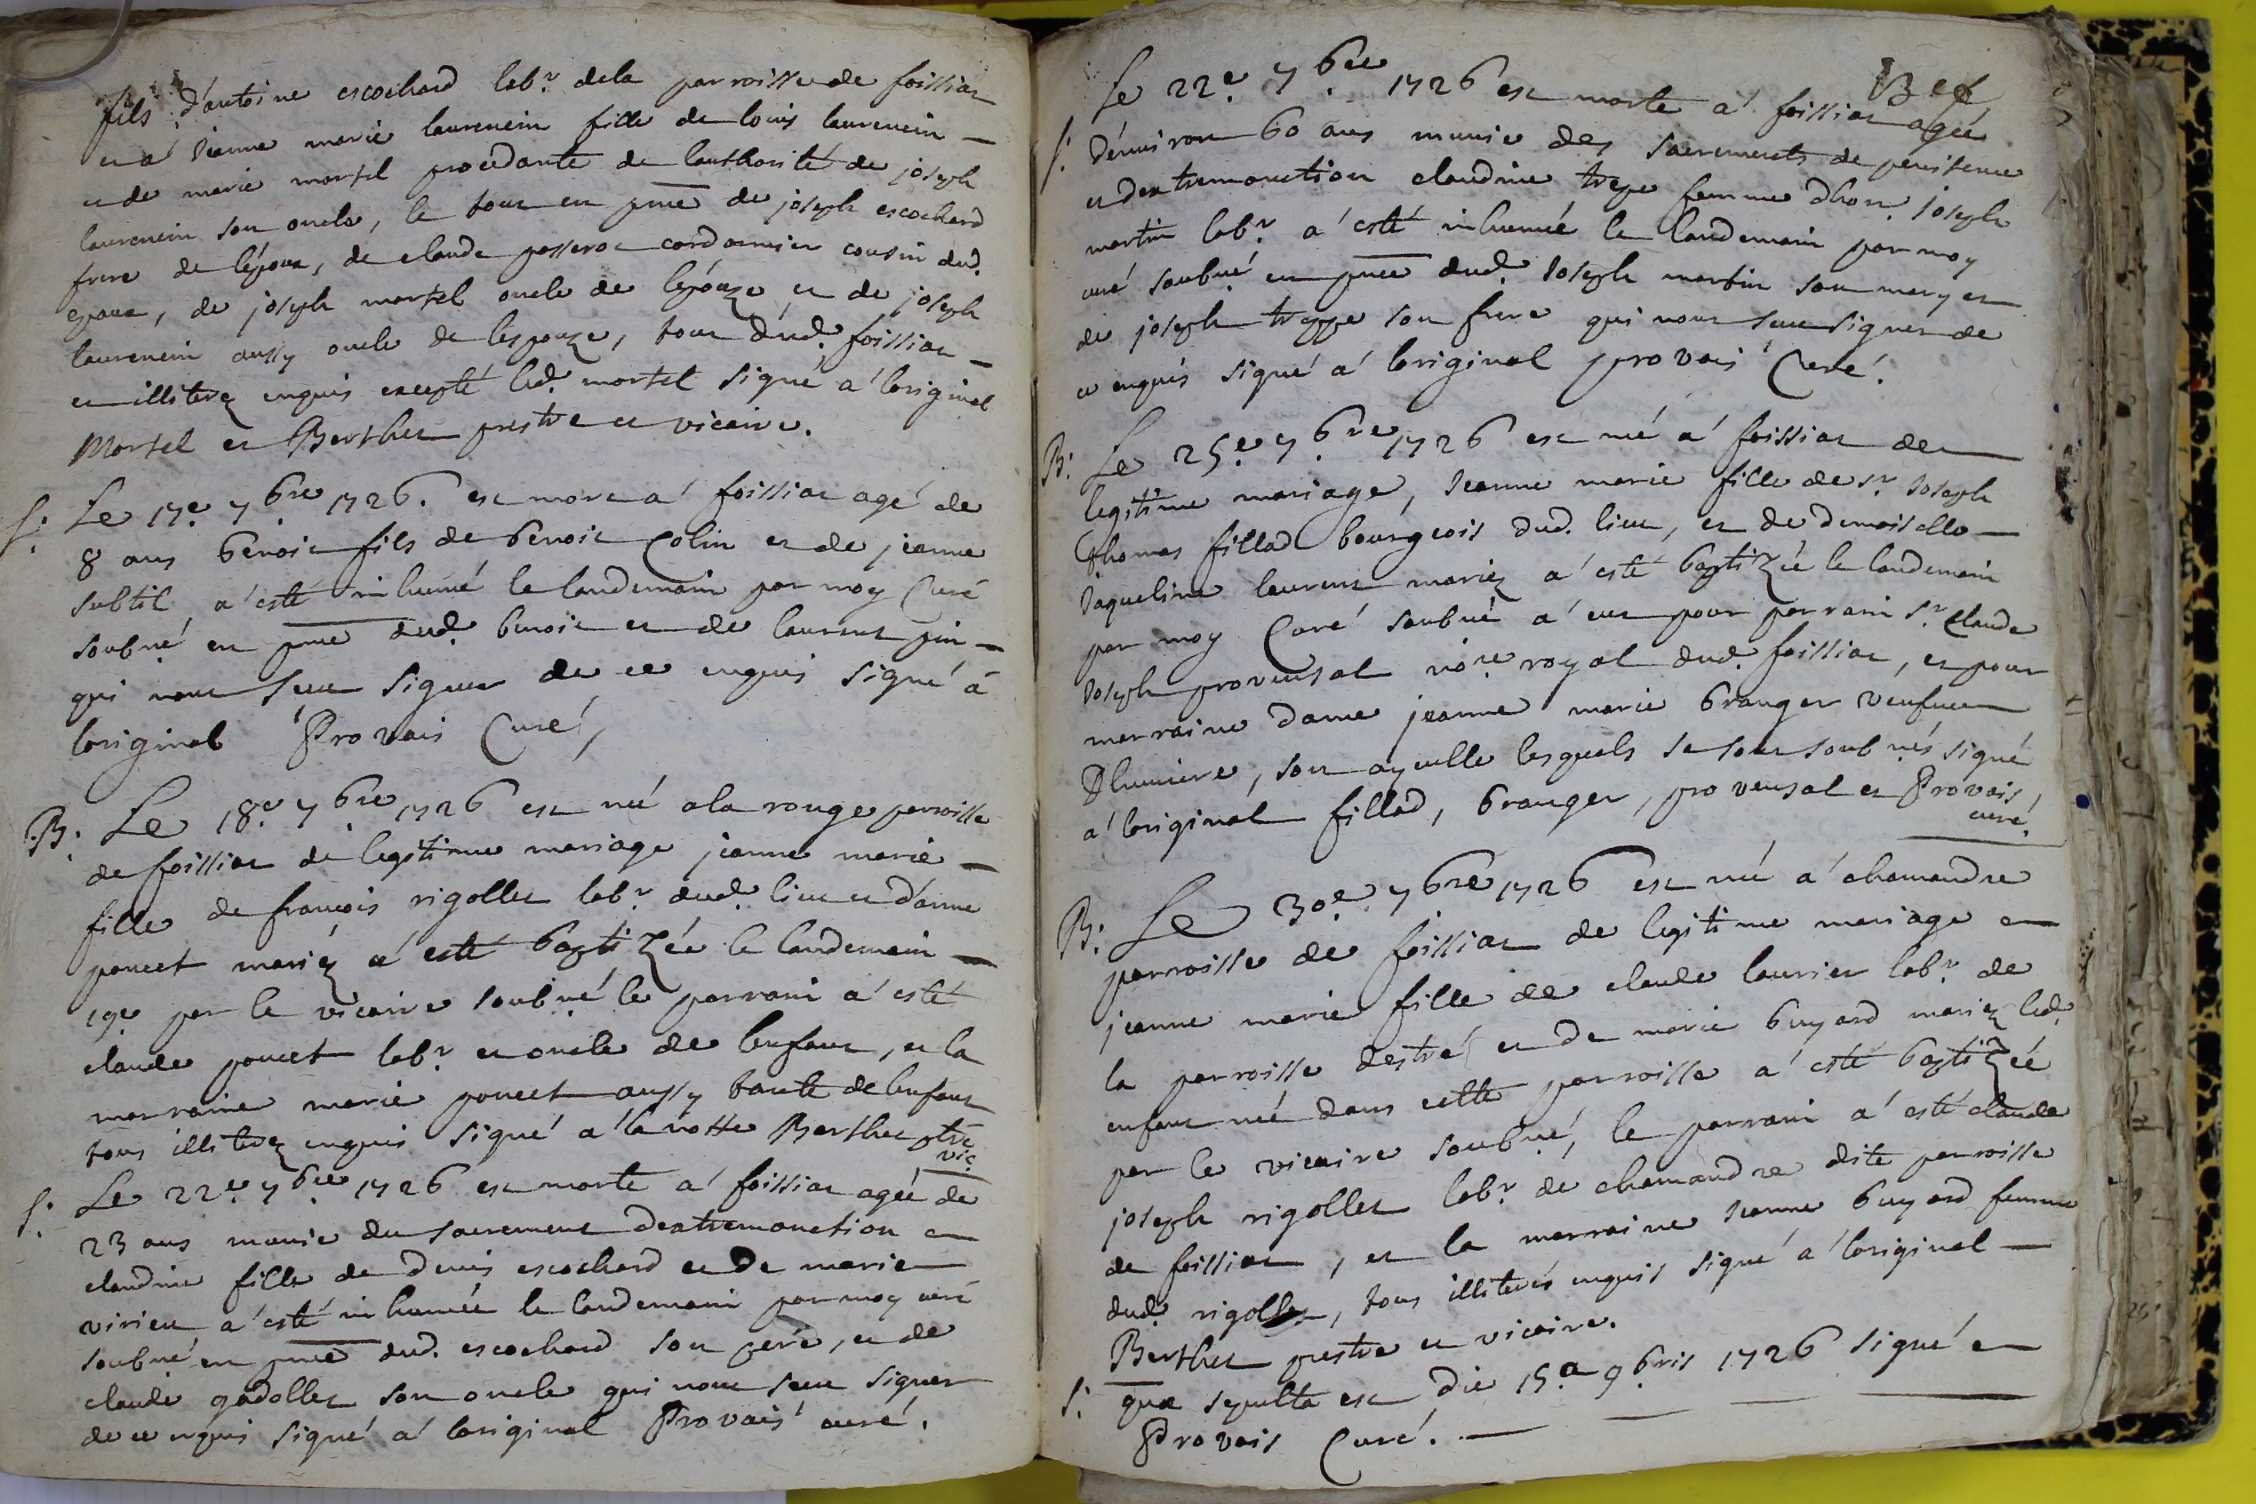 fils d'antoine escochard lab.r dela parroisse de foissiat
et a' Jeanne marie laurencin fille de louis laurencin
et de marie mortel procedante de lauthorité de joseph
laurencin son oncle, le tout en pnce de joseph escochard
frere de lépoux, de claude passerat cordonnier cousin dud.
epoux, de joseph mortel oncle de lépouze et de joseph
laurencin aussy oncle de lespouze, tous dud. foissiat
et illiterez enquis excepté led. mortel signé a' loriginal
Mortel et Berthet prestre et vicaire.
S. Le 17.e 7bre 1726. est mort a' foissiat agé de
8 ans benoit fils de benoit Colin et de jeanne
subtil a' esté inhumé le landemain par moy Curé
soubné en pnce dud. benoit et de laurent pin
qui nont sceu signer de ce enquis signé a'
loriginal Provais Curé,
B. Le 18.e 7bre 1726 est né a la rouge parroisse
de foissiat de legitime mariage jeanne marie
fille de francois rigollet lab.r dud. lieu et d'anne
poncet mariéz a' esté baptizée le landemain
19e par le vicaire soubné le parrain a' esté
claude poncet lab.r et oncle de lenfant, et la
marraine marie poncet aussy tante de lenfant
tous illiterez enquis signé a' la notte Berthet ptre
vic.
S. Le 22.e 7bre 1726 est morte a' foissiat agée de
23 ans munie du sacrement dextremonction
claudine fille de denis escochard et de marie
virieu a' esté inhumée le landemain par moy curé
soubné en pnce dud. escochard son peré, et de
claude gadollet son oncle qui nont sceu signer
de ce enquis signé a' loriginal Provais curé.
Le 22.e 7bre 1726 est morte a' foissiat agée
S. dénviron 60 ans munie des sacrements de penitence
et dextremonction claudine trepe femme dhon. joseph
martin lab.r a' esté inhumée le landemain par moy
curé soubné en pnce dud. Joseph martin son mary et
de joseph treppe son frere qui nont sceu signer de
ce enquis signé a' loriginal provais Curé.
B. Le 25.e 7bre 1726 est né a' foissiat de
legitime mariage, Jeanne marie fille de s.r Joseph
thomas fillod bourgeois dud. lieu, et de demoiselle
Jaqueline laurent mariez a' esté baptizée le landemain
par moy Curé soubné a' eu pour parrain s.r Claude
Joseph provensal nore royal dud. foissiat, et pour
marraine dame jeanne marie branger veufue
Dlumiere, son ayeulle lesquels se sont soubnés signé
a' loriginal fillod, branger, provensal et Provais
curé.
B. Le 30.e 7bre 1726 est né a' chamandre
parroisse de foissiat de legitime mariage
jeanne marie fille de claude laurier lab.r de
la parroisse destré et de marie buyard mariez led.
enfant né dans cette parroisse a' esté baptizée
par le vicaire soubné, le parrain a' esté claude
joseph rigollet lab.r de chamandre dite parroisse
de foissiat, et la marraine Jeanne buyard femme
dud. rigollet, tous illiterés enquis signé a' loriginal
Berthet prestre et vicaire.
S. quæ sepulta est die 15.a 9bris 1726 signé
Provais Curé.